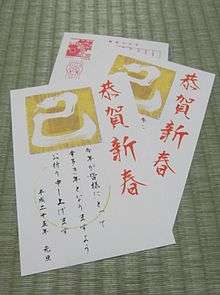 恭賀新春
巳
恭賀新春
巳
今年が皆様にとって
幸多き年となりますよう
お祈り申し上げます
平成二十五年 元旦